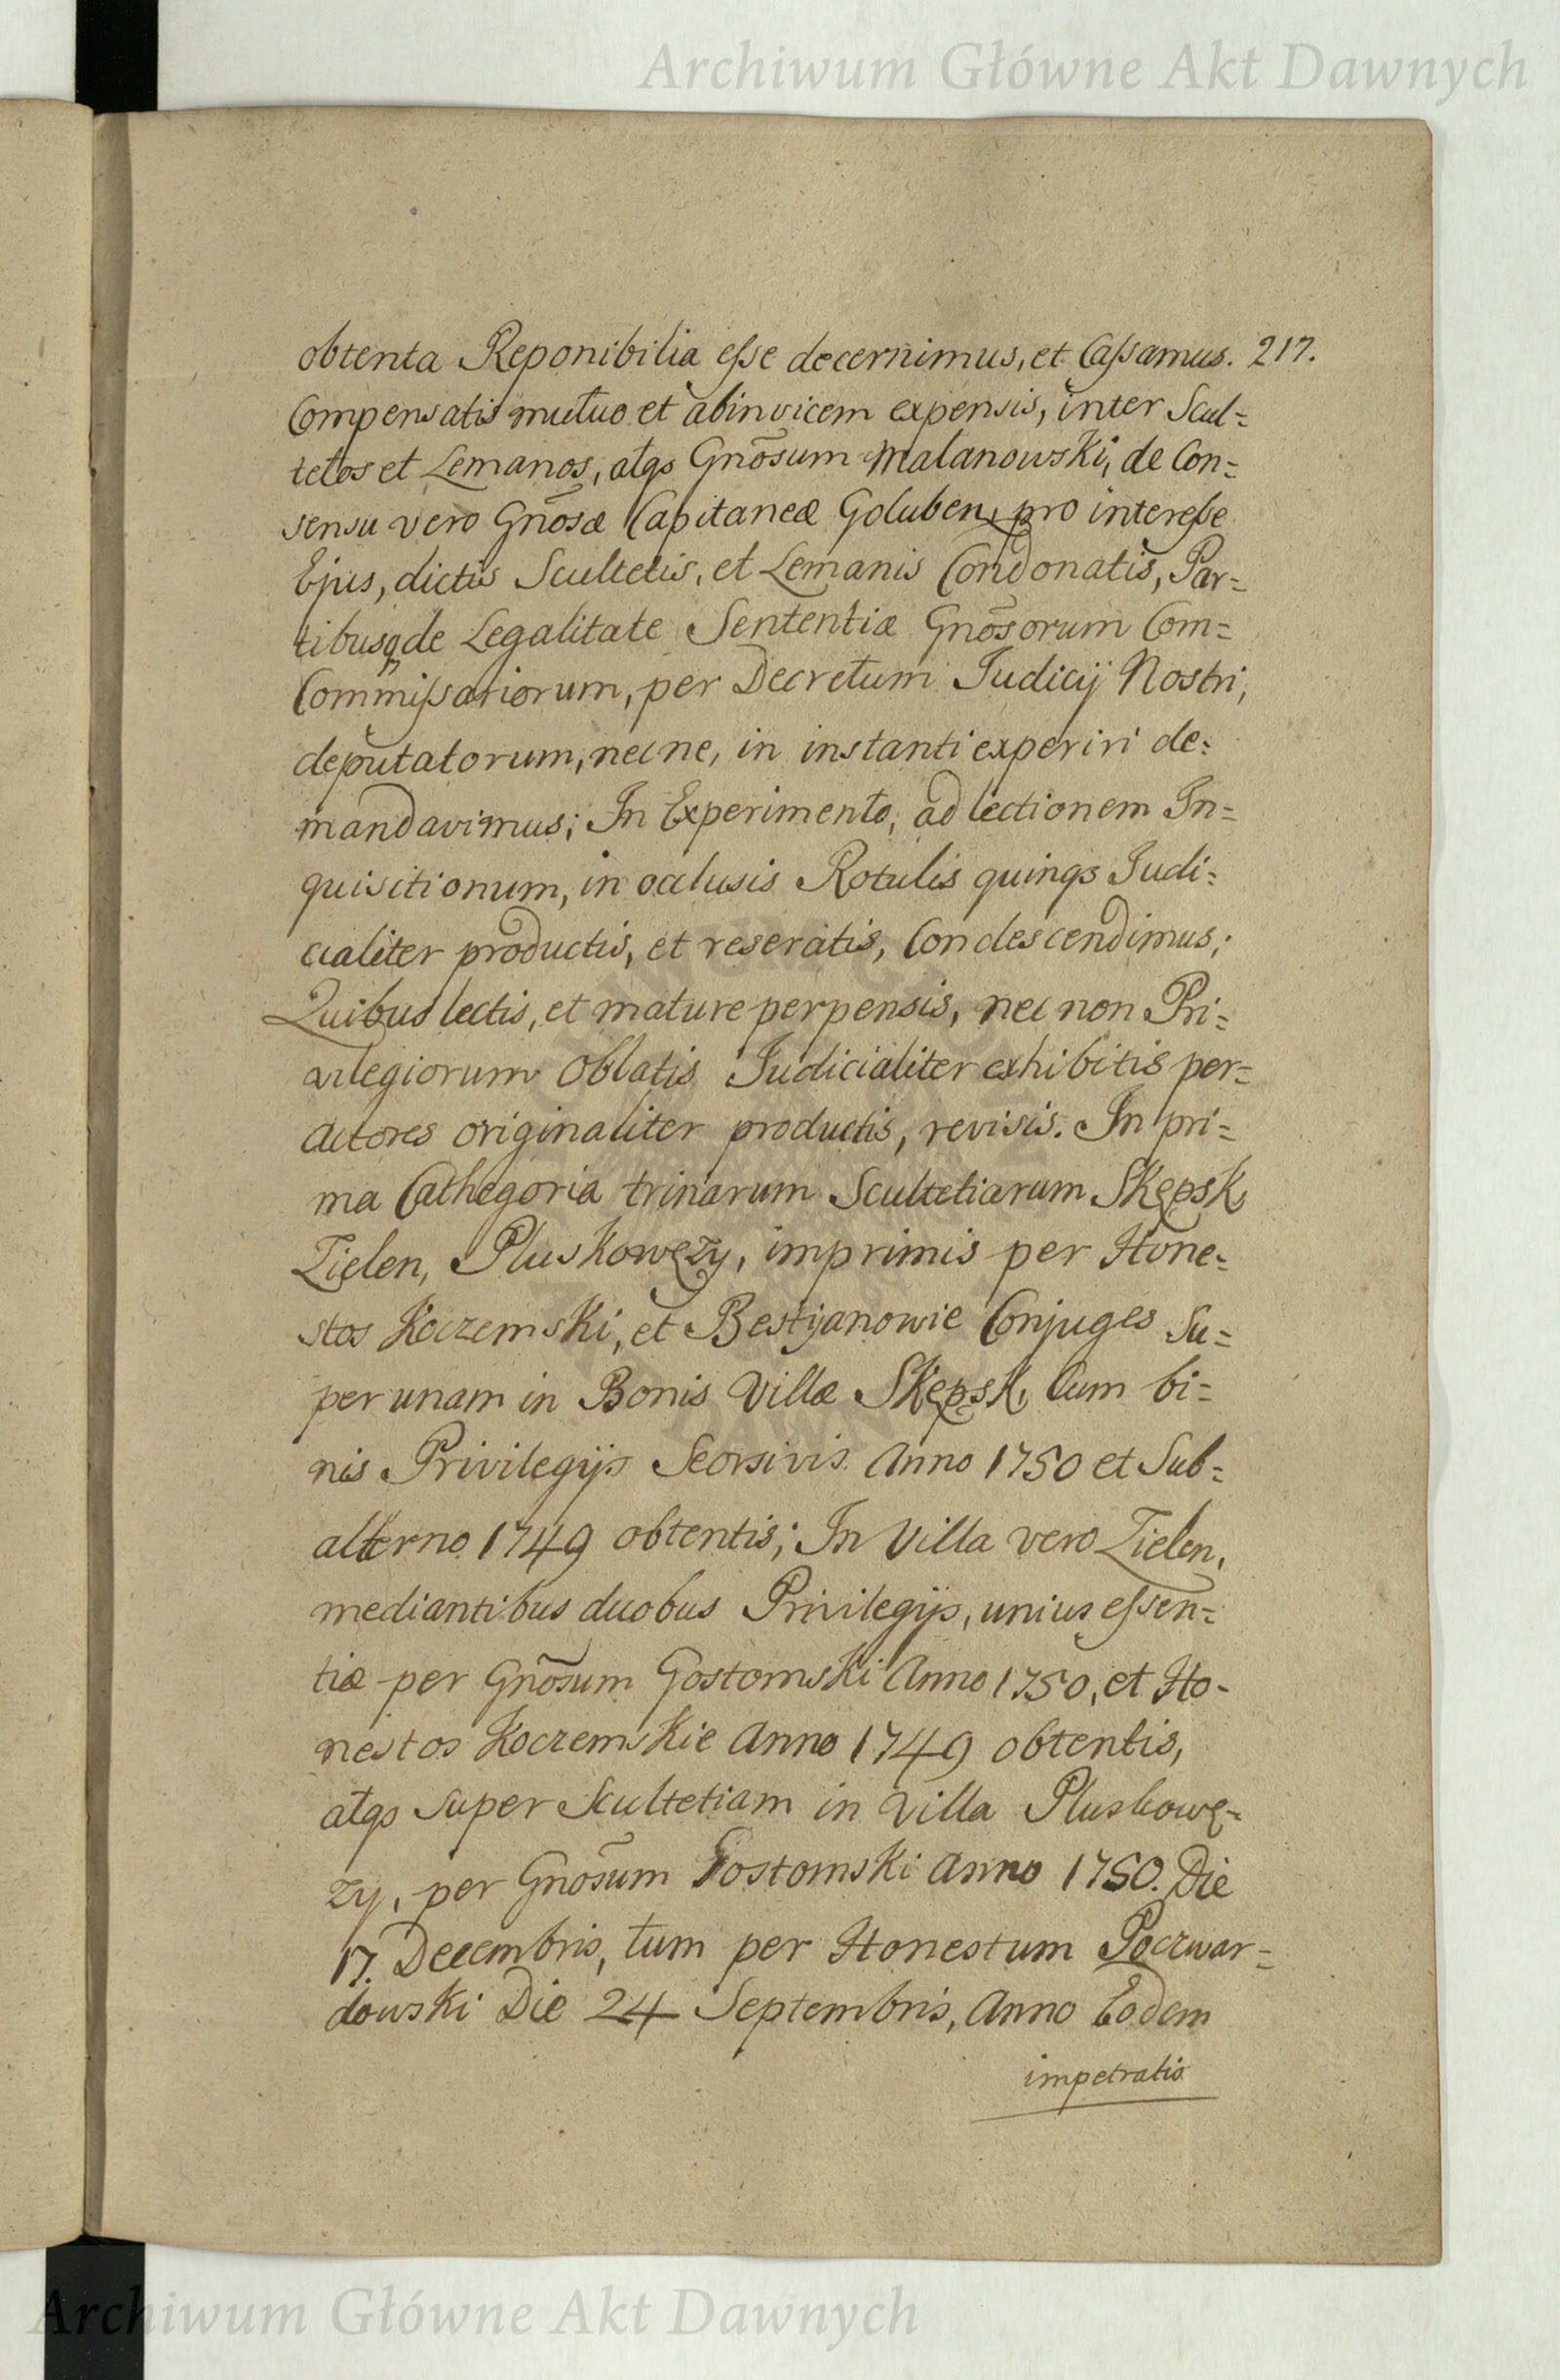 Archiwum Główne Akt Dawnych
obtenta Reponibilia esse decernimus, et Cassamus. 217.
Compensatis mutuo et abinvicem expensis, inter Scul=
tetos et Lemanos, atqs Gnōsum Malanowski, de Con=
sensu vero Gnōsæ Capitaneæ Goluben, pro interesse
Ejus, dictis Scultetis, et Lemanis Condonatis, Par=
tibusq de Legalitate Sententiæ Gnōsorum Com=
Commissariorum, per Decretum Judicij Nostri,
deputatorum, necne, in instanti experiri de=
mandavimus; In Experimento, ad lectionem In=
quisitionum, in occlusis Rotulis quinqs Judi=
cialiter productis, et reseratis, Condescendimus;
Quibus lectis, et mature perpensis, nec non Pri=
vilegiorum Oblatis Judicialiter exhibitis per=
Actores originaliter productis, revisis. In pri=
ma Cathegoria trinarum Scultetiarum Skępsk,
Zielen, Pluskowęzy, imprimis per Hone=
stos Koczemski, et Bestyanowie Conjuges su=
per unam in Bonis Villæ Skępsk, Cum bi=
nis Privilegijs Seorsivis Anno 1750 et Sub=
alterno 1749 obtentis; In Villa vero Zielen,
mediantibus duobus Privilegijs, unius essen=
tiæ per Gnōsum Gostomski Anno 1750, et Ho-
nestos Koczemskie Anno 1749 obtentis,
atqs super Scultetiam in Villa Pluskowę=
zy, per Gnōsum Gostomski Anno 1750. Die
17. Decembris, tum per Honestum Poczwar=
dowski Die 24 Septembris, Anno Eodem
impetratis
Archiwum Główne Akt Dawnych